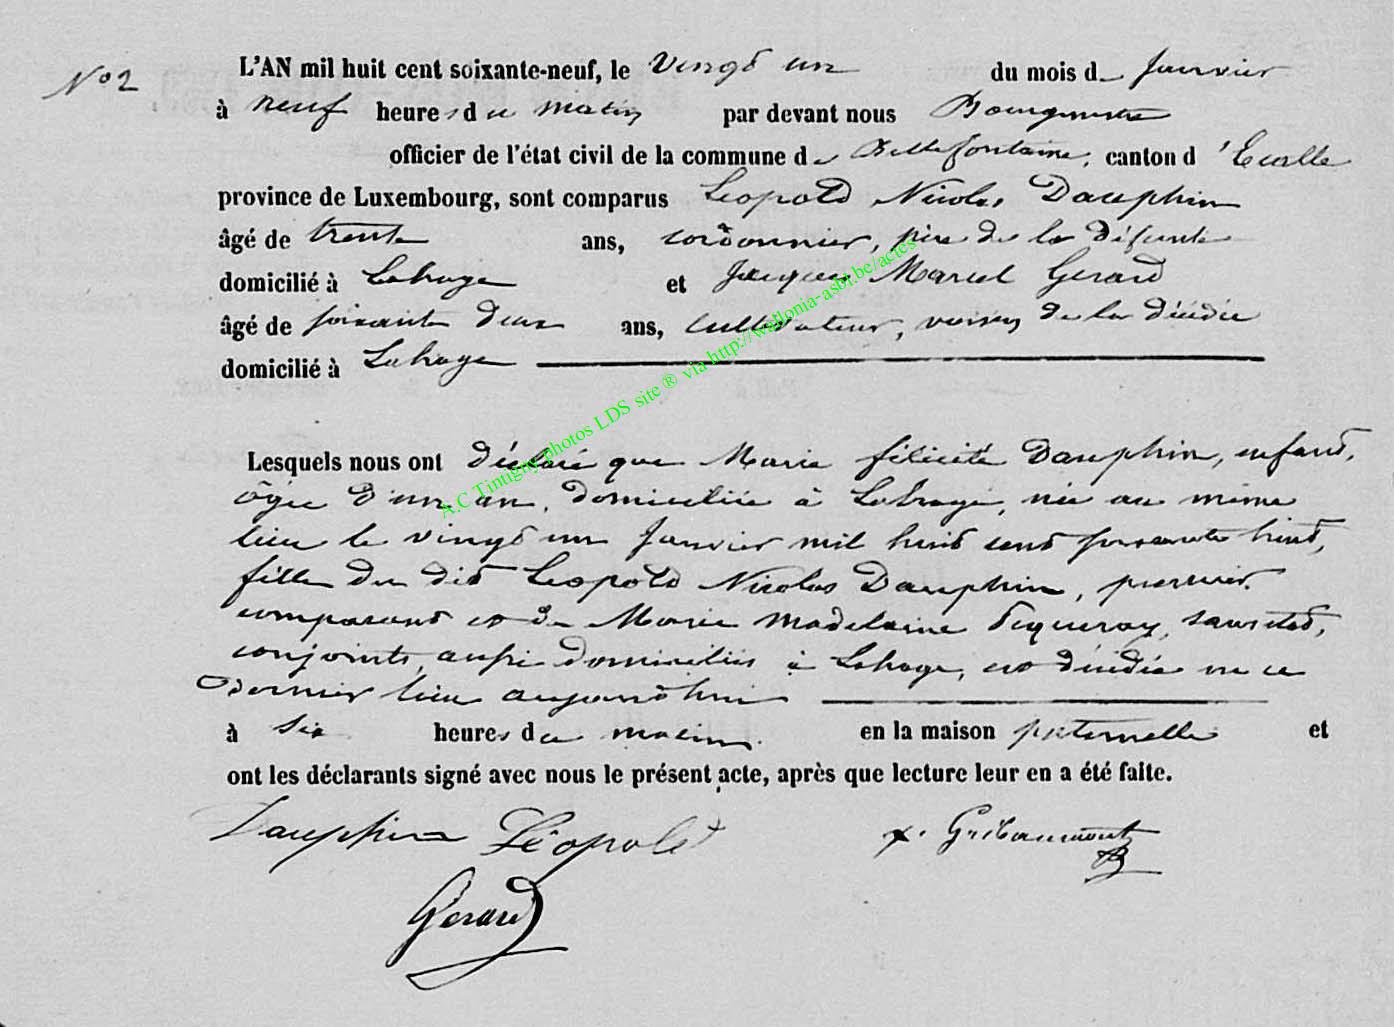 N° 2
L'AN mil huit cent soixante-neuf, le vingt un du mois de Janvier
à neuf heures du matin par devant nous Bourgmestre
officier de l'état civil de la commune de Bellefontaine, canton d'Etalle
province de Luxembourg, sont comparus Léopold Nicolas Dauphin
âgé de trente ans, cordonnier, père de la défunte
domicilié à Lahage et Jacques Marcel Gerard
âgé de soixante deux ans, cultivateur, voisin de la décédée
domicilié à Lahage
Lesquels nous ont déclaré que Marie félicité Dauphin, enfant,
âgée d'un an, domiciliée à Lahage, née au même
lieu le vingt un Janvier mil huit cent soixante huit,
fille du dit Léopold Nicolas Dauphin, premier
comparant et de Marie Madelaine sans état,
conjoints, aussi domiciliés à Lahage, est décédée en ce
dernier lieu aujourd'hui
à six heures du matin en la maison paternelle et
ont les déclarants signé avec nous le présent acte, après que lecture leur en a été faite.
Dauphin Léopold
Gribaumont
Gerard
A.C Tintigny photos LDS site ® via http://wallonia-asbl.be/actes